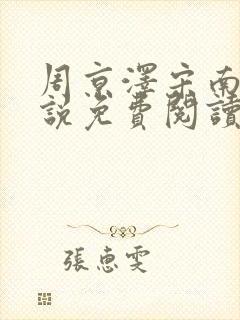 周京澤宋南
說免費閱讀
張惠雯